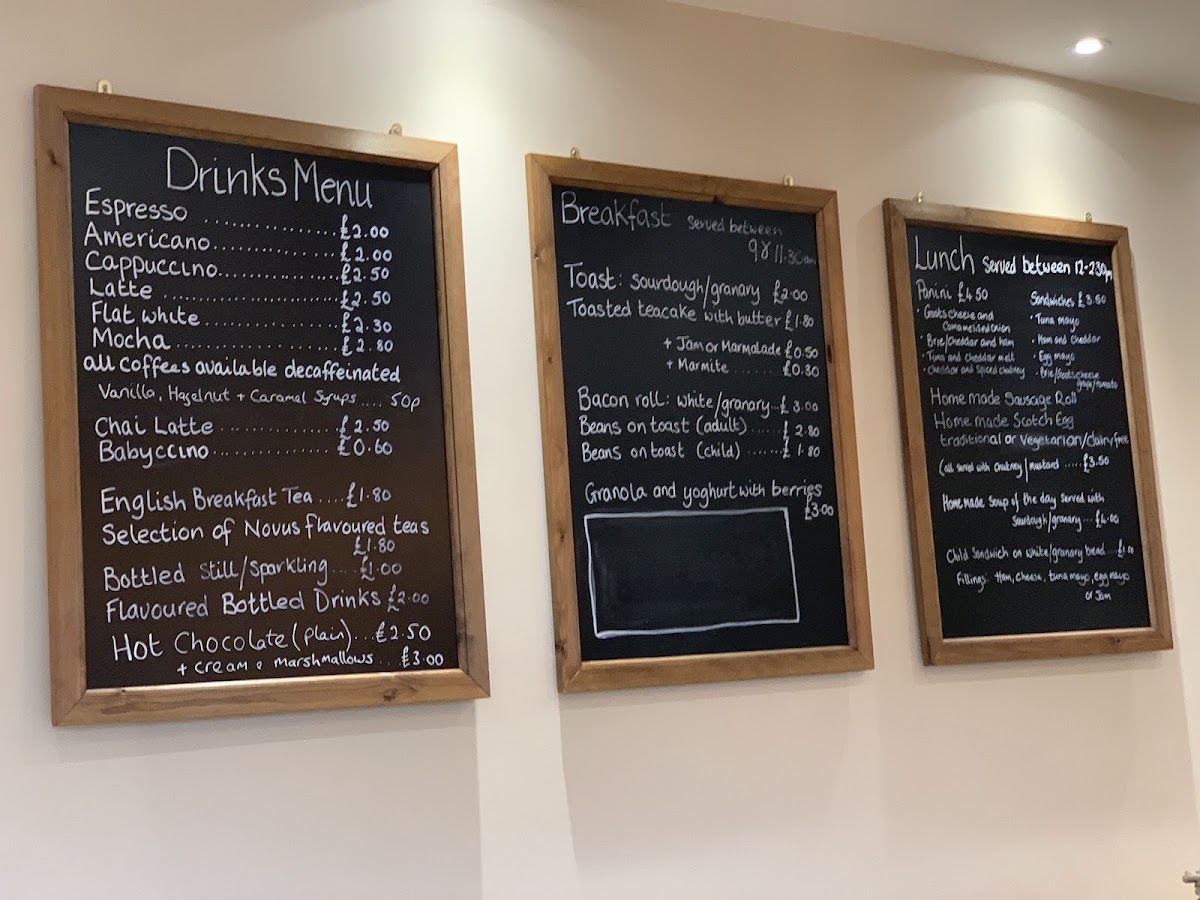 Drinks Menu
Espresso .............. £2.00
Americano.............. £2.00
Cappuccino............. £2.50
Latte ................. £2.50
Flat white............. £2.30
Mocha ................. £2.80
all coffees available decaffeinated
Vanilla, Hazelnut + Caramel Syrups .... 50p
Chai Latte ............. £2.50
Babyccino .............. £0.60
English Breakfast Tea ....£1.80
Selection of Novus flavoured teas
£1.80
Bottled Still/Sparkling....£1.00
Flavoured Bottled Drinks £2.00
Hot Chocolate (plain)...£2.50
+ cream & marshmallows...£3.00
Breakfast Served between
9 & 11.30am
Toast: sourdough/granary £2.00
Toasted teacake with butter £1.80
+ Jam or Marmalade £0.50
+ Marmite ....... £0.30
Bacon roll: white/granary...£3.00
Beans on toast (adult)......£2.80
Beans on toast (child) ......£1.80
Granola and yoghurt with berries
£3.00
Lunch Served between 12-2.30pm
Panini £4.50
· Goats cheese and
Caramelised onion
· Brie/Cheddar and ham
· Tuna and cheddar melt
· cheddar and spiced chutney
Sandwiches £3.50
· Tuna mayo
· Ham and cheddar
· Egg mayo
· Brie/Goats cheese
grape/tomato
Home made Sausage Roll
Home made Scotch Egg
traditional or vegetarian/dairy free
(all served with chutney/mustard .....£3.50
Home made Soup of the day served with
Sourdough/granary ...£4.00
Child Sandwich on white/granary bread ...
Fillings: Ham, cheese, tuna mayo, egg mayo
or Jam